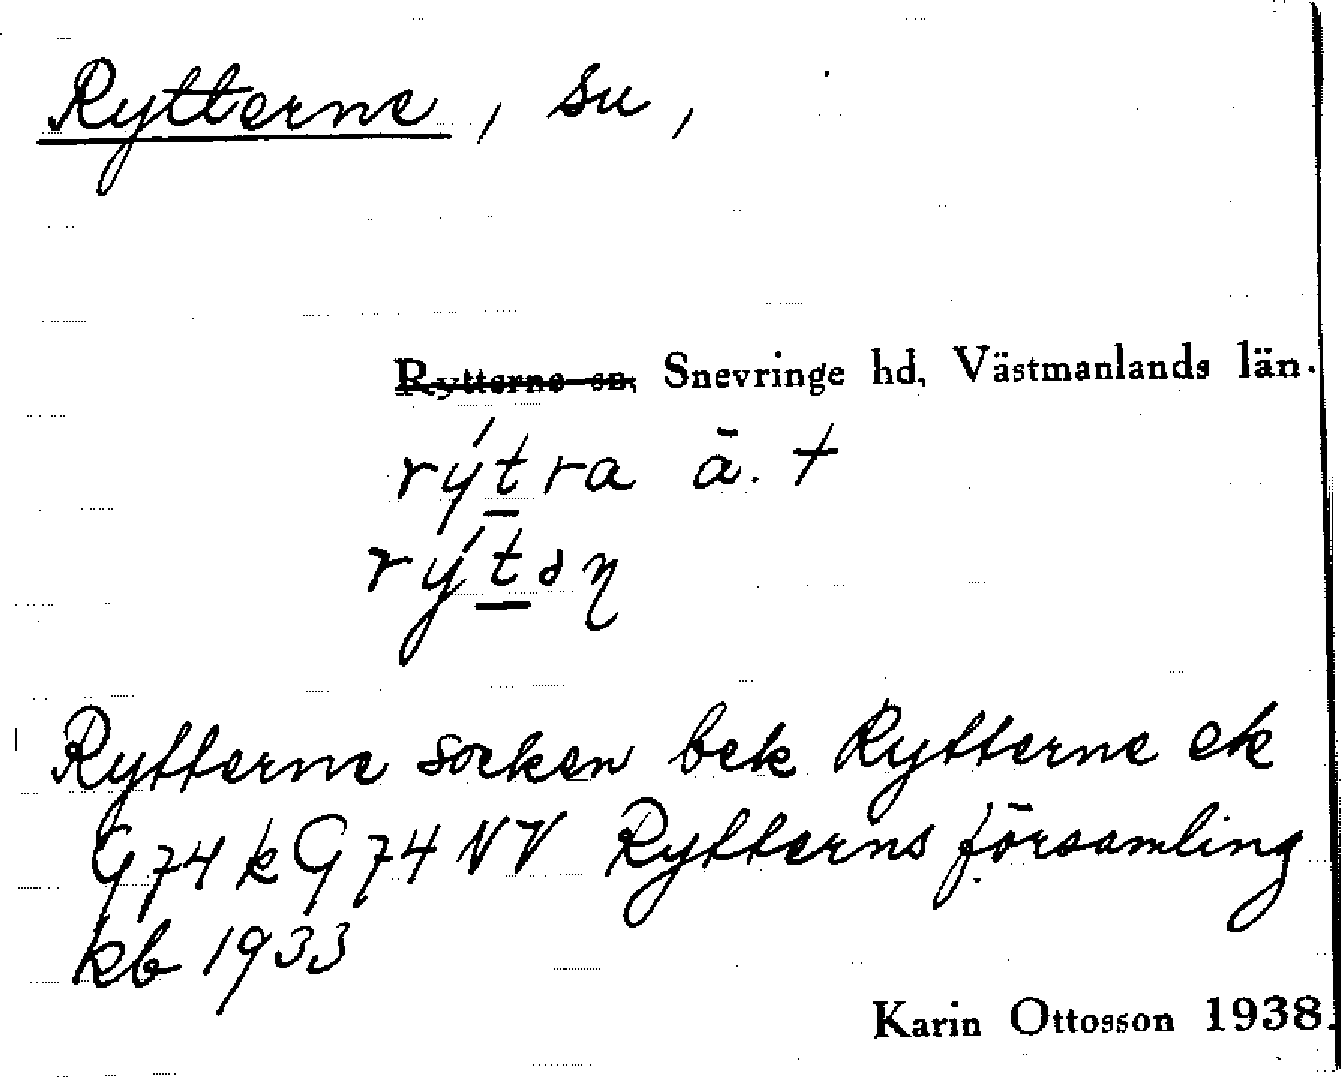 Rytterne, sn,
Rytterne sn, Snevringe hd, Västmanlands län.
rýtra ä. †
rýtəɳ
Rytterne socken bek Rytterne ek
G74k G74NV Rytterns församling
kb 1933
Karin Ottosson 1938.